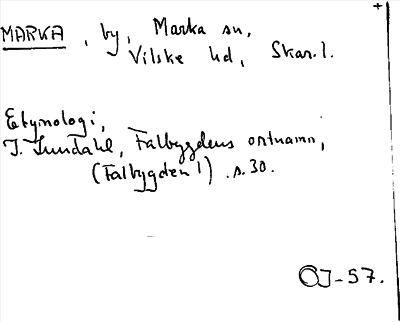 MARKA, by, Marka sn,
Vilske hd, Skar.l.
Etymologi,
I. Lundahl, Falbygdens ortnamn,
(Falbygden 1) s. 30.
OJ-57.